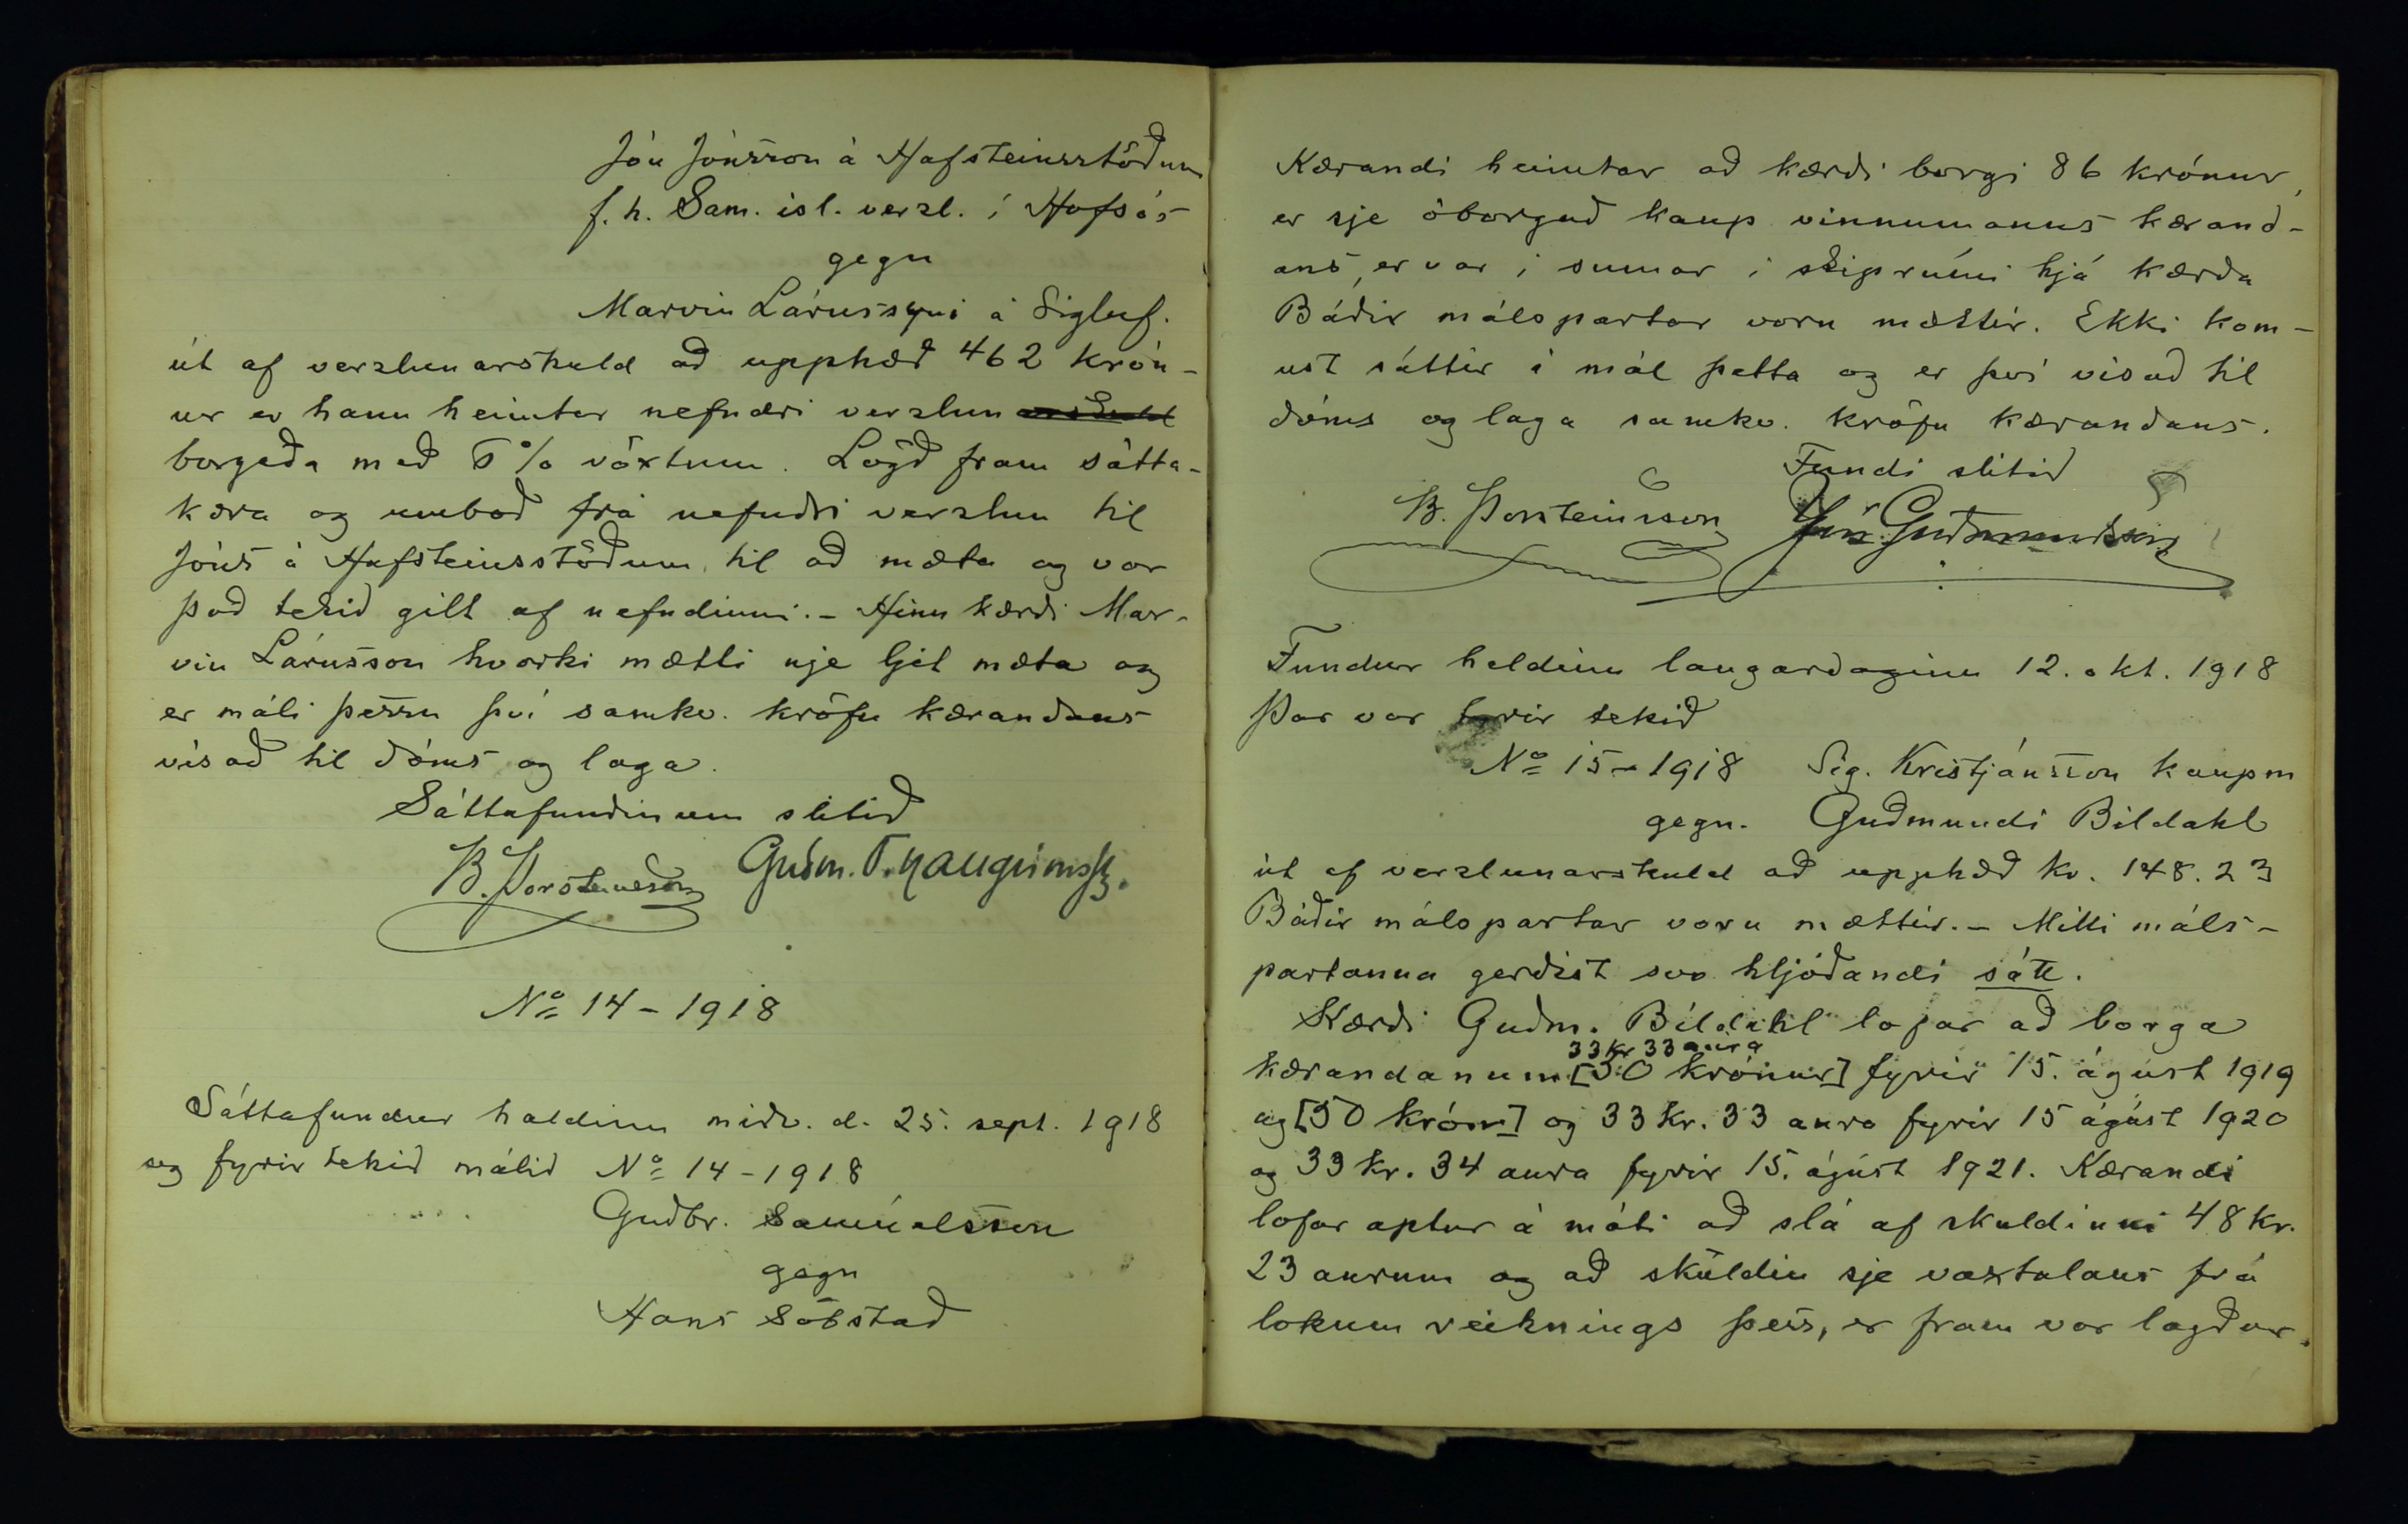 Jón Jónsson á Hafsteinsstöðum
f. h. Sam. ísl. verzl. í Hofsós
gegn
Marvin Lárussyni á Sigluf.
út af verzlunarskuld að upphæð 462 krón-
ur er hann heimtar nefndri verzlun arskuld
borgaða með 5% vöxtum. Lögð fram sátta-
kæra og umboð frá nefndri verzlun til
Jóns á Hafsteinsstöðum til að mæta og var
það tekið gilt af nefndinni. - Hinn kærði Mar-
vin Lárusson hvorki mætti nje ljet mæta og
er máli þessu því samkv. kröfu kærandans
vísað til dóms og laga.
Sáttafundinum slitið
B. Þorsteinsson Guðm. T. Hallgrímss.
No 14 - 1918
Sáttafundur haldinn miðv. d. 25. sept. 1918
og fyrir tekið málið No 14 - 1918
Guðbr. Samúelsson
gegn
Hans Söbstað
Kærandi heimtar að kærði borgi 86 krónur,
er sje óborgað kaup vinnumanns kærand-
ans, er var í sumar í skiprúmi hjá kærða
Báðir málspartar voru mættir. Ekki kom-
ust sáttir í mál þetta og er því vísað til
dóms og laga samkv. kröfu kærandans.
Fundi slitið
B. Þorsteinsson Jón Guðmundsson
Fundur haldinn laugardaginn 12. okt. 1918
Þar var fyrir tekið
No 15 - 1918 Sig. Kristjánsson kaupm
gegn. Guðmundi Bíldahl
út af verzlunarskuld að upphæð kr. 148.23
Báðir málspartar voru mættir. - Milli máls-
partanna gerðist svo hljóðandi sátt.
Kærði Guðm. Bíldahl lofar að borga
33 kr 33 aura
kærandanum [50 krónur] fyrir 15. ágúst 1919
og [50 krónr] og 33 kr. 33 aura fyrir 15 ágúst 1920
og 33 kr. 34 aura fyrir 15. ágúst 1921. Kærandi
lofar aptur á móti að slá af skuldinni 48 kr.
23 aurum og að skuldin sje vaxtalaus frá
lokum reiknings þess, er fram var lagður.